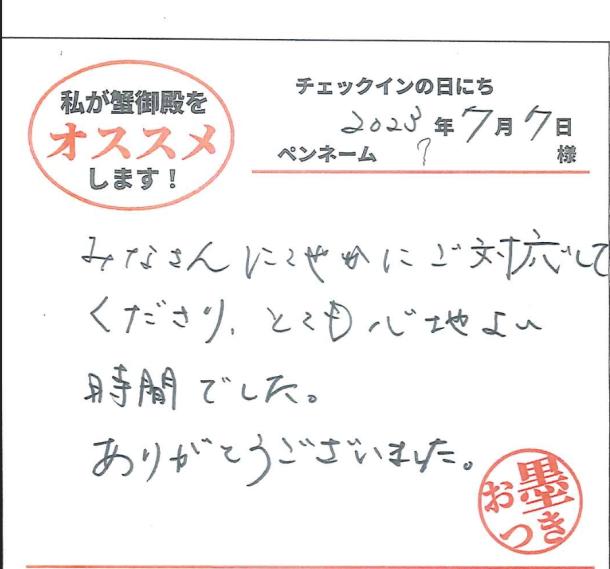 私が蟹御殿を
オススメ
します!
チェックインの日にち
2023年7月7日
ペンネーム ? 様
みなさんにこやかにご対応して
くださり、とても心地よい
時間でした。
ありがとうございました。
お墨
つき